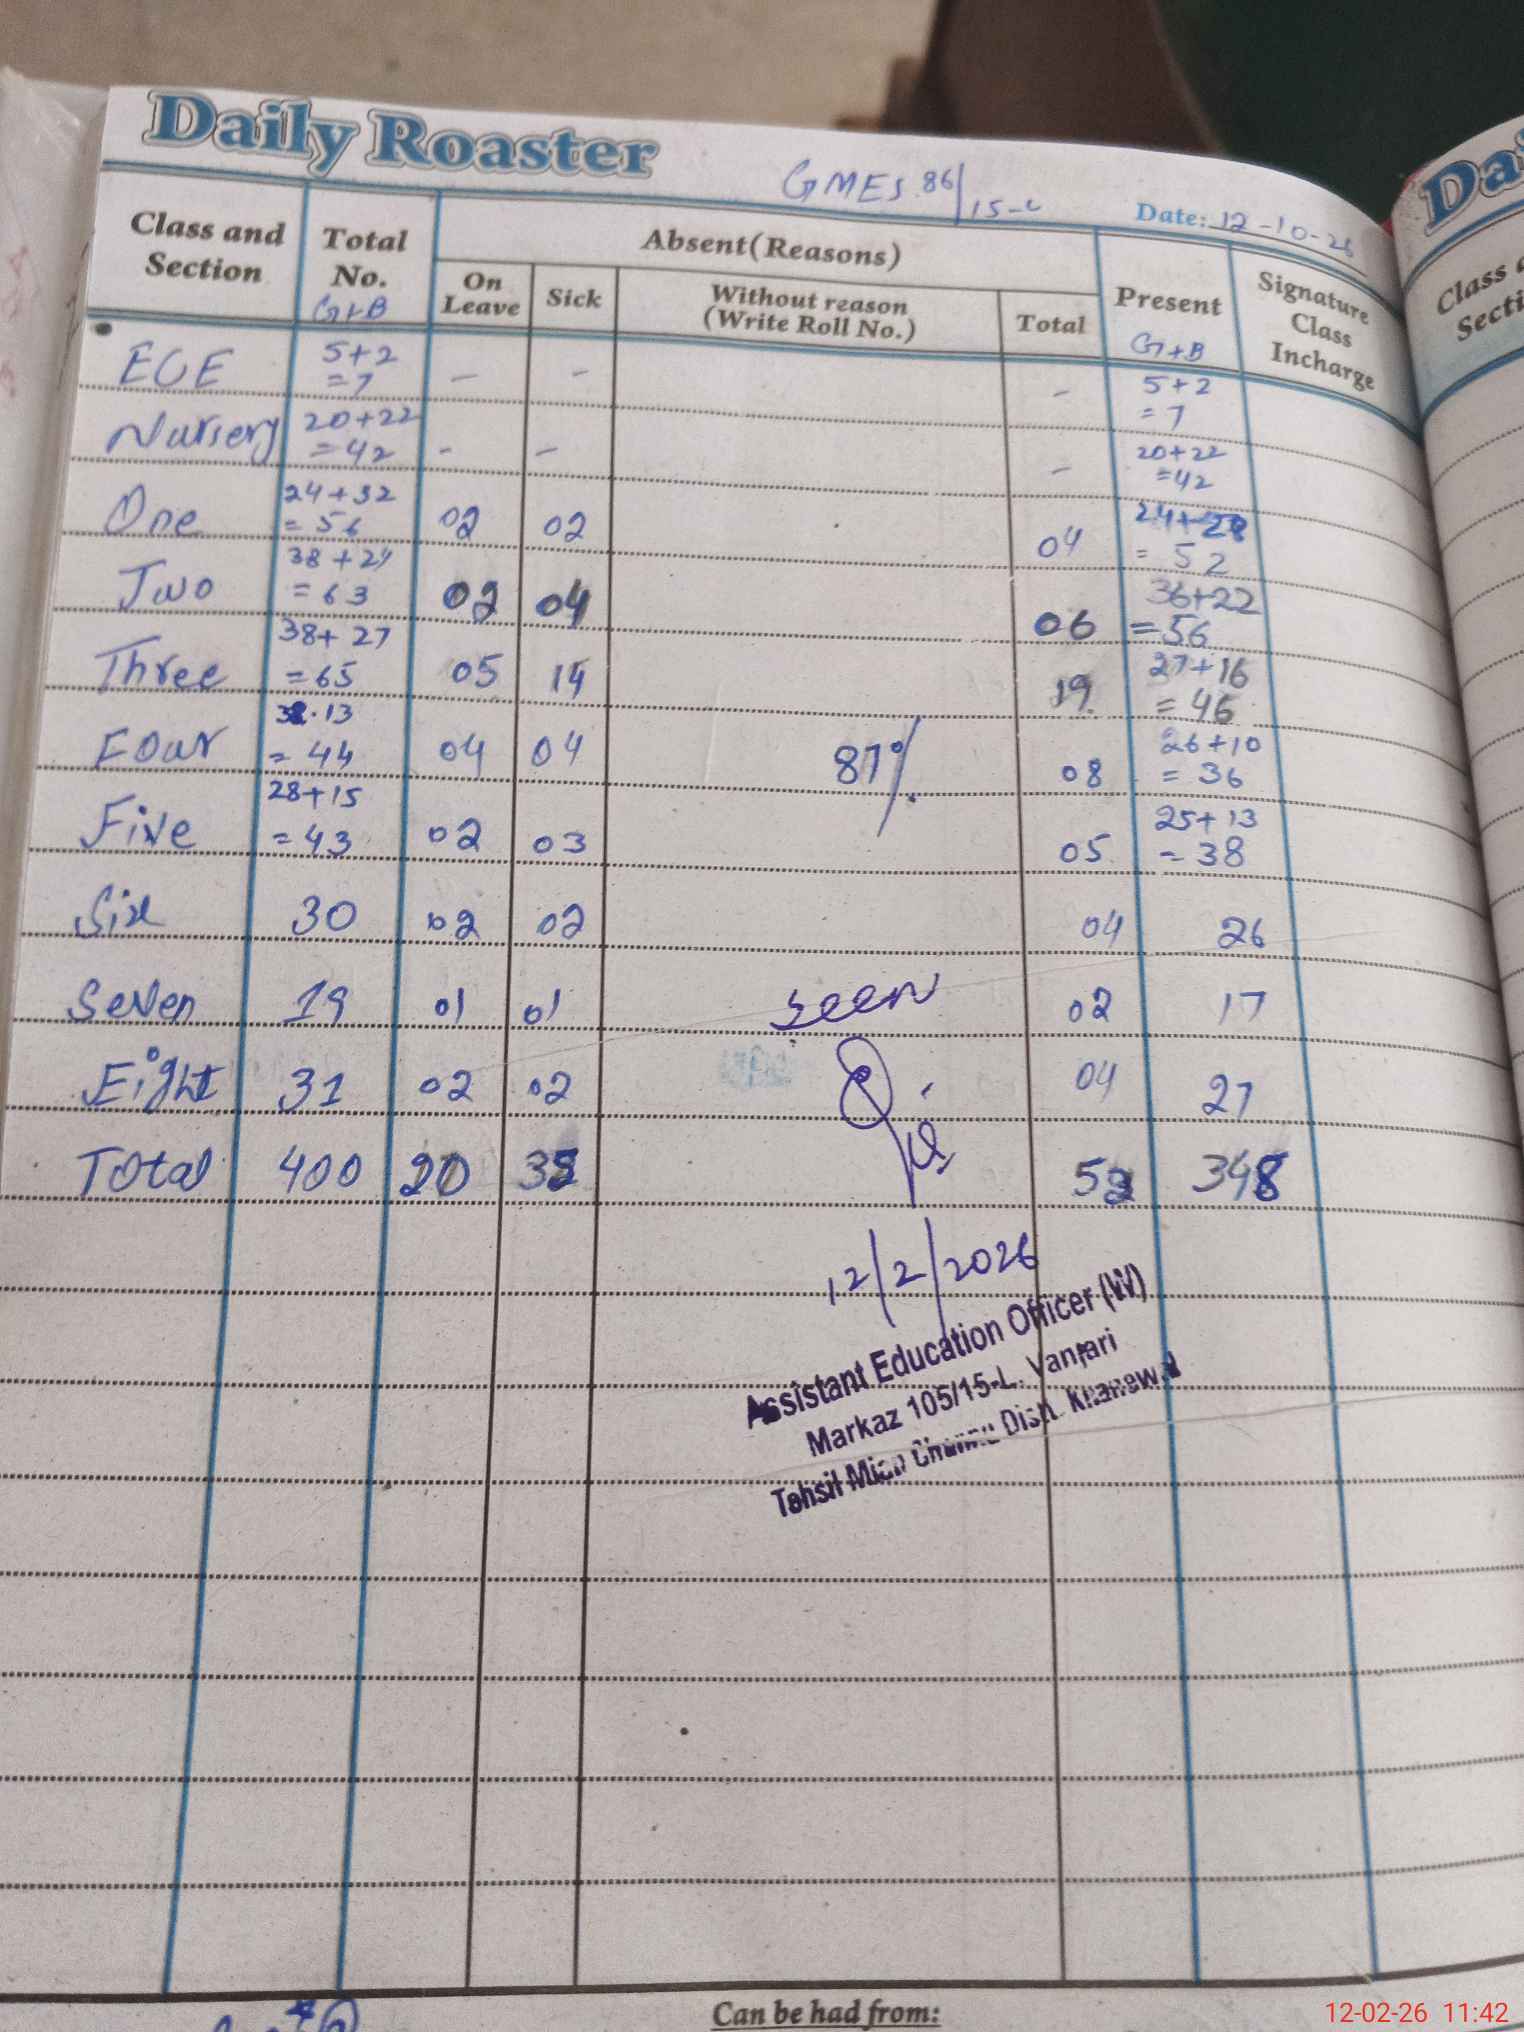 Daily Roaster
GMES 86/15-L
Date: 12-10-26
Class and Section Total No. G+B Absent(Reasons) Present G+B Signature Class Incharge
On Leave Sick Without reason (Write Roll No.) Total
ECE 5+2 =7 – – – 5+2 =7
Nursery 20+22 =42 - – – 20+22 =42
One 24+32 = 56 02 02 04 24+28 = 52
Two 38+24 = 63 02 04 06 36+22 =56
Three 38+27 =65 05 14 19 27+16 = 46
Four 13 = 44 04 04 87% 08 26+10 = 36
Five 28+15 = 43 02 03 05 25+13 = 38
Six 30 02 02 04 26
Seven 19 01 01 seen 02 17
Eight 31 02 02 04 27
Total 400 20 32 52 348
12/2/2026
Assistant Education Officer (W)
Markaz 105/15-L. Vanjari
Tehsil Mian Channu Distt. Khanewal
Can be had from:
12-02-26 11:42
Dai
Class a
Secti